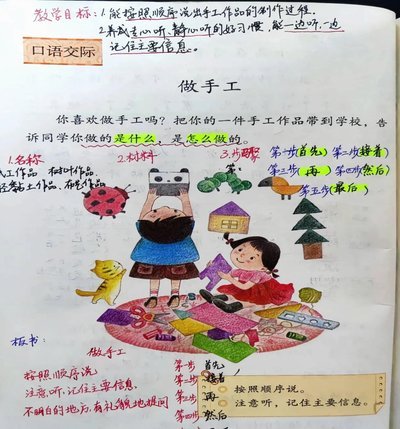 教学目标:1.能按照顺序说出手工作品的制作过程.
2.养成专心听、静心听的好习惯,能一边听,一边
记住主要信息。
口语交际
做手工
你喜欢做手工吗?把你的一件手工作品带到学校,告
诉同学你做的是什么,是怎么做的。
1.名称 2.材料 3.步骤 第一步(首先) 第二步(接着)
工作品 树叶作品. 第: 第三步(再) 第四步(然后)
轻黏土作品. 第五步(最后)
板书:
做手工
按照顺序说 第一步 首先
注意听,记住主要信息. 第二步 接着
不明白的地方,有礼貌地提问 第三步 再
第四步 然后
按照顺序说。
注意听,记住主要信息。